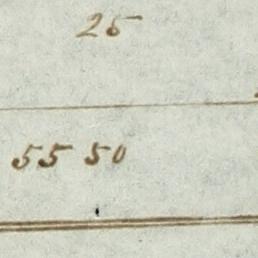 25
55 50